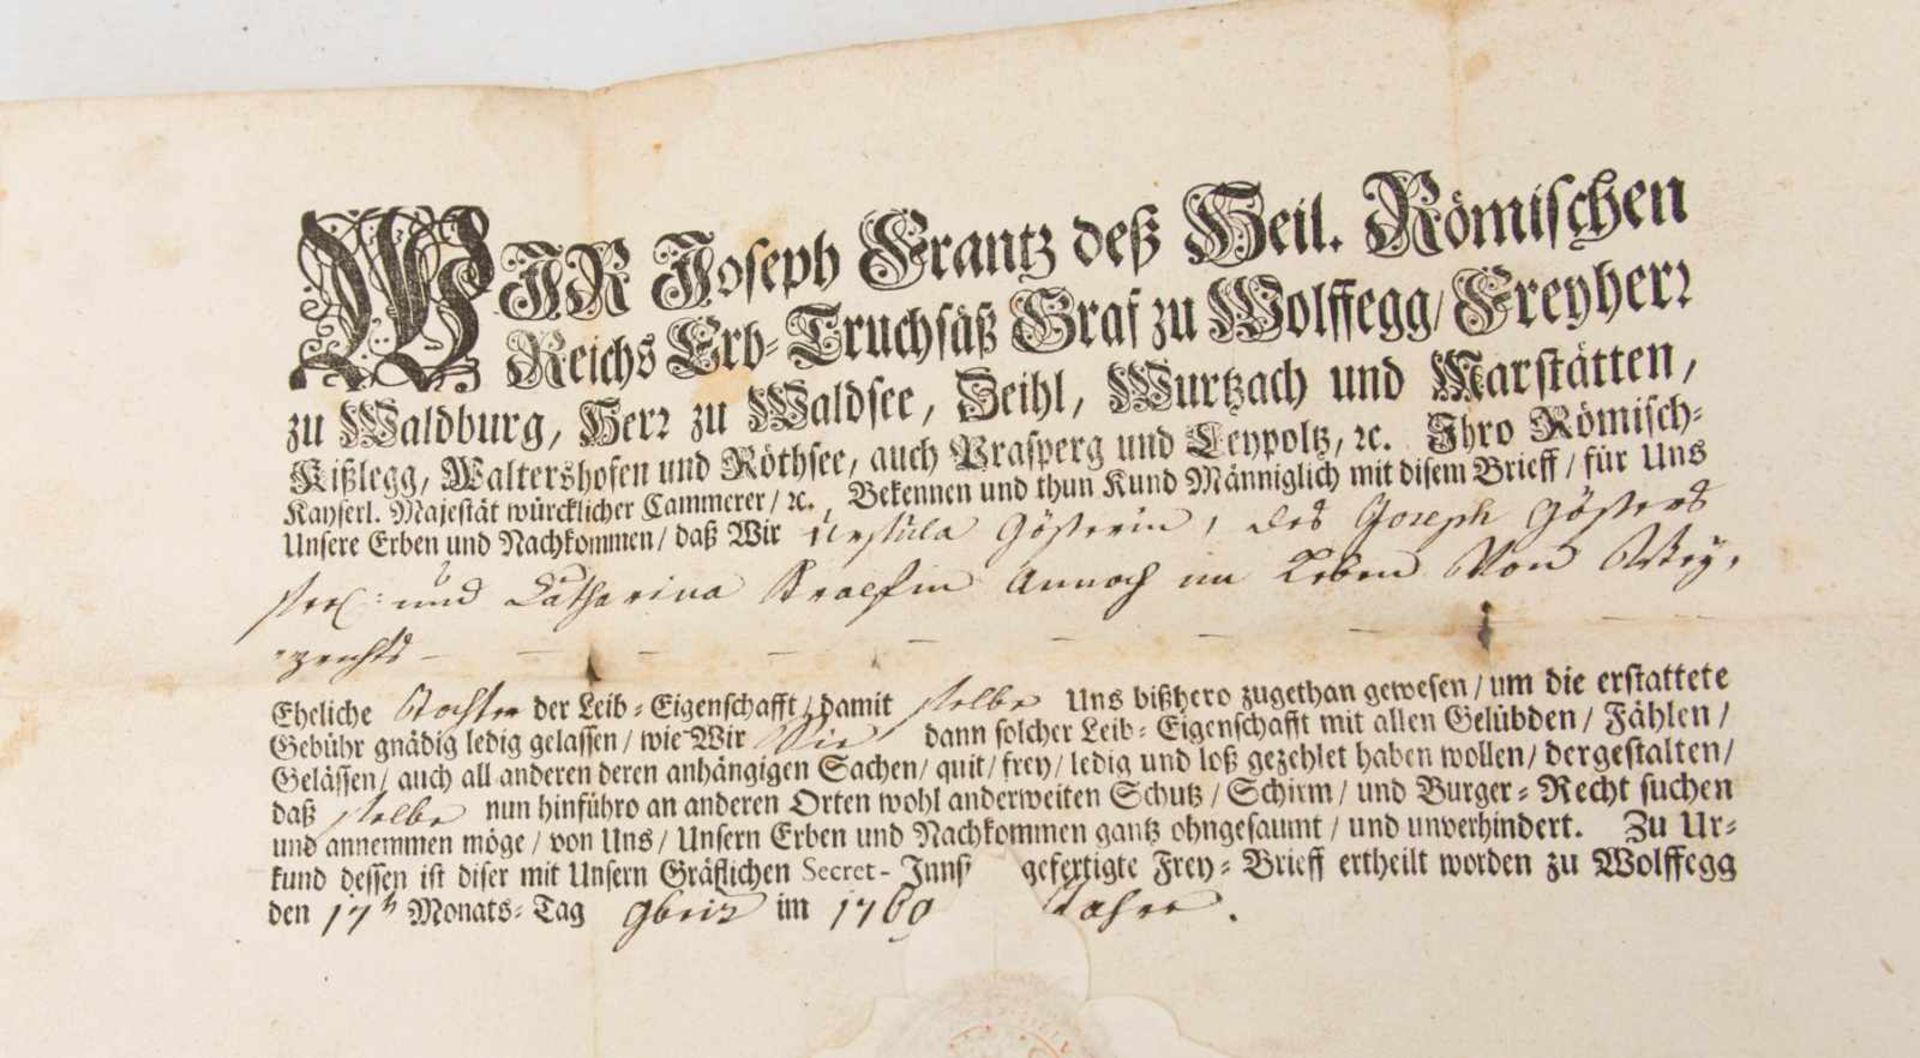 WIR Joseph Frantz deß Heil. Römischen
Reichs Erb-Truchsäß Graf zu Wolffegg/ Freyherr
zu Waldburg, Herr zu Waldsee, Zeihl, Wurtzach und Marstätten,
Kißlegg, Waltershofen und Röthsee, auch Prasperg und Leypoltz, ꝛc. Ihro Römisch-
Kayserl. Majestät würcklicher Cammerer / ꝛc. , Bekennen und thun Kund Männiglich mit disem Brieff / für Uns
Unsere Erben und Nachkommen / daß Wir Ursula Gösterin, des Joseph Gösters
und Catharina annoch im Leben Von
Eheliche Tochter der Leib-Eigenschafft / damit selbe Uns bißhero zugethan gewesen / um die erstattete
Gebühr gnädig ledig gelassen / wie Wir Sie dann solcher Leib-Eigenschafft mit allen Gelübden / Fählen /
Gelässen / auch all anderen deren anhängigen Sachen / quit / frey / ledig und loß gezehlet haben wollen / dergestalten /
daß selbe nun hinführo an anderen Orten wohl anderweiten Schutz / Schirm / und Burger-Recht suchen
und annemmen möge / von Uns / Unsern Erben und Nachkommen gantz ohngesaumt / und unverhindert. Zu Ur-
kund dessen ist diser mit Unsern Gräflichen Secret-Innsi gefertigte Frey-Brieff ertheilt worden zu Wolffegg
den 17ten Monats-Tag 9bris im 1769 Jahre.